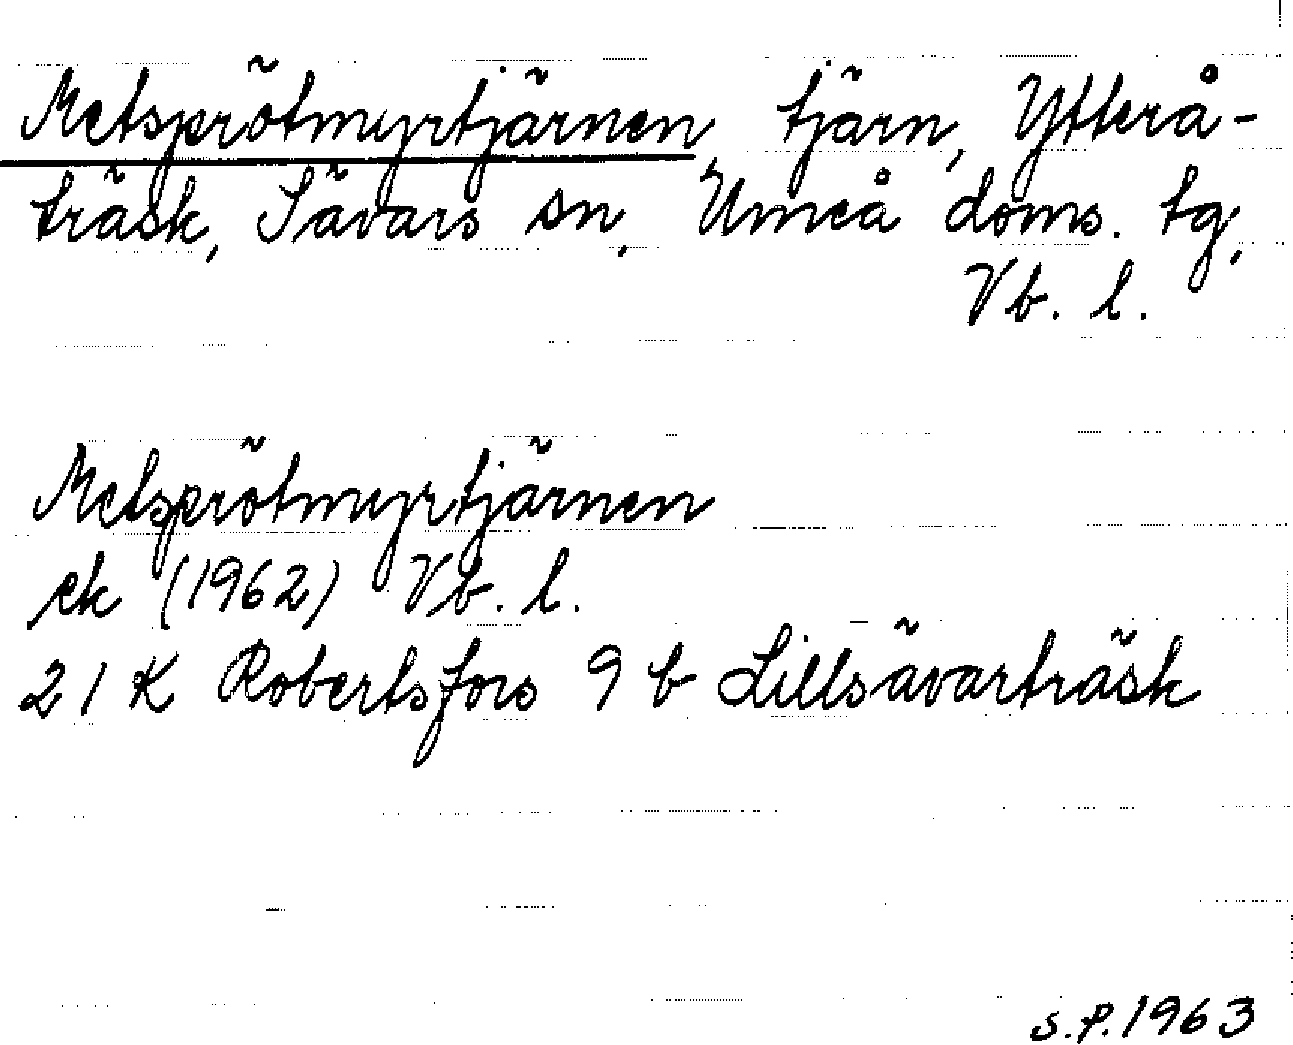 Metsprötmyrtjärnen, tjärn, Ytterå-
träsk, Sävars sn, Umeå doms. tg,
Vb. l.
Metsprötmyrtjärnen
ek (1962) Vb. l.
21 K Robertsfors 9 b Lillsävarträsk
S.P. 1963